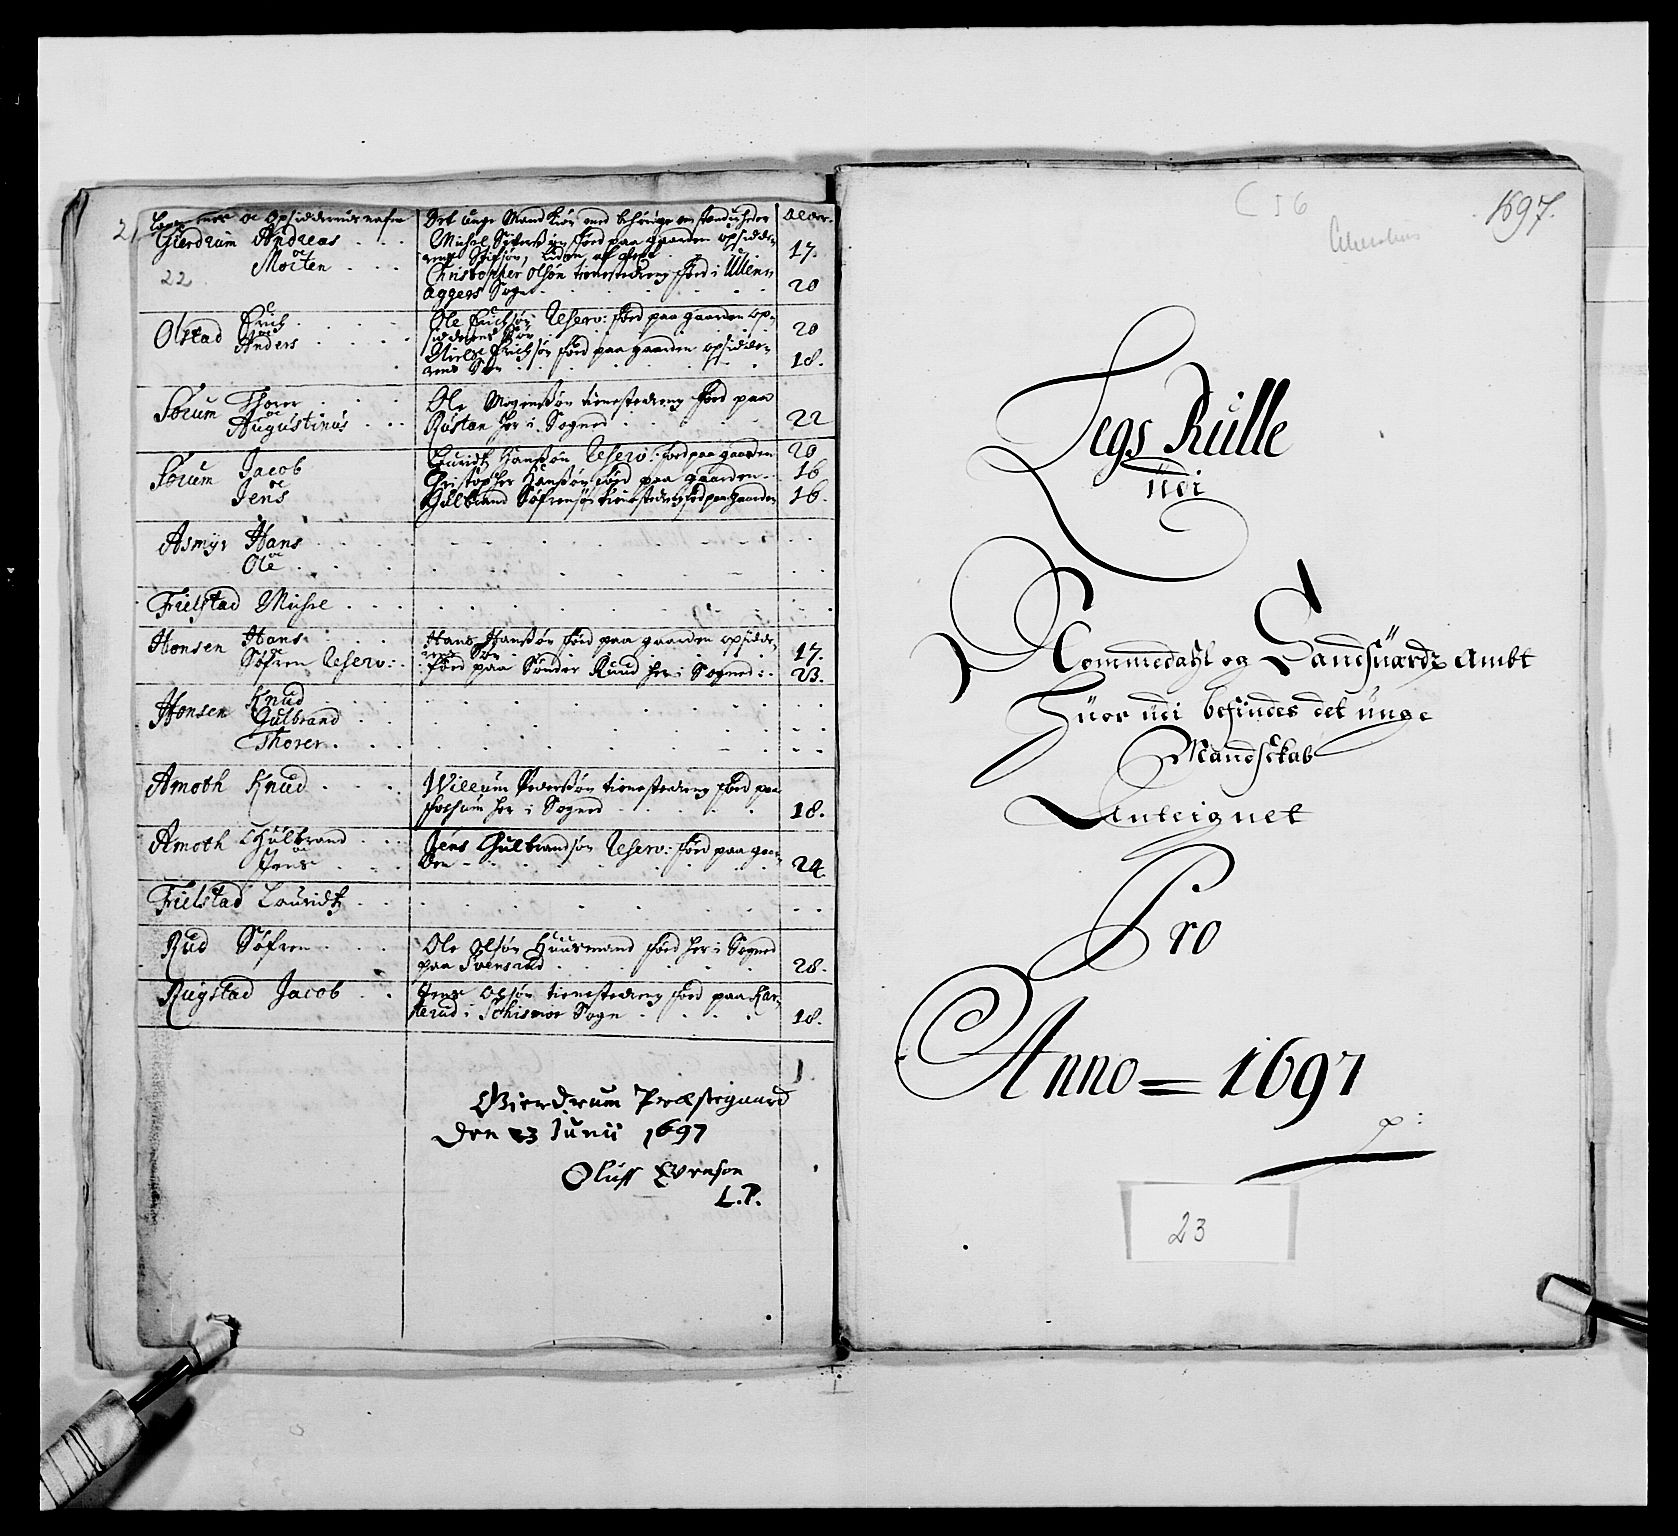 21.
22
Opsiddernis nafn
Det unge Mand kiøn med behørige omstendigheder
alder.
Gierdrum Andreas
oc
Morten
Michel Syverssøn fød paa gaarden opsidde-
rens Stifsøn, Liden af
17.
Christopher Olsøn tienestedreng fød i Ullens
aggers Sogn
20
Olstad Erich
oc
Anders
Ole Erichsøn Reserv: fød paa gaarden op-
sidderens Søn
20
Nielse Erichsøn fød paa gaarden opsidde-
rens Søn
18.
Sørum Thorer
oc
Augustinus
Ole Mogenssøn tienestedreng fød paa
Rustan her i Sogned
22
Sørum Jacob
oc
Jens
Lauridtz Hanssøn Reserv: fød paa gaarden
20
Christopher Hanssøn fød paa gaarden
16
Gulbrand Søfrensøn tienestedreng fød paa gaarden
16.
Asmyr Hans
oc
Ole
Fielstad Michel
Honsen Hans
oc
Søfren Reserv:
Hans Hanssøn fød paa gaarden opsidde-
rens Søn
17.
fød paa Sønder Ruud her i Sogned:
23.
Honsen Knud
Gulbrand
Thorer
Amoth Knud
Willum Pederssøn tienestedreng fød paa
her i Sogned
18.
Amoth Gulbrand
oc
Jens
Jens Gulbrandsøn Reserv: fød paa gaar-
den
24.
Fielstad Lauridtz
Rud Søfren
Ole Olsøn Huusmand fød her i Sogned
paa Svensrud
28.
Rugstad Jacob
Jens Olsøn tienestedreng fød paa Kar-
terud i Schismoe Sogn
18.
Gierdrum Præstegaard
Den 23 Junii 1697
Oluff Evenson
L.P.
C 56
1697.
Akershus
Legs Rulle
Udi
Nommedahl og Sandsuærdz Ambt
Huor udi befindes det unge
Mandskab
Anteignet
Pro
Anno = 1697
p:
23